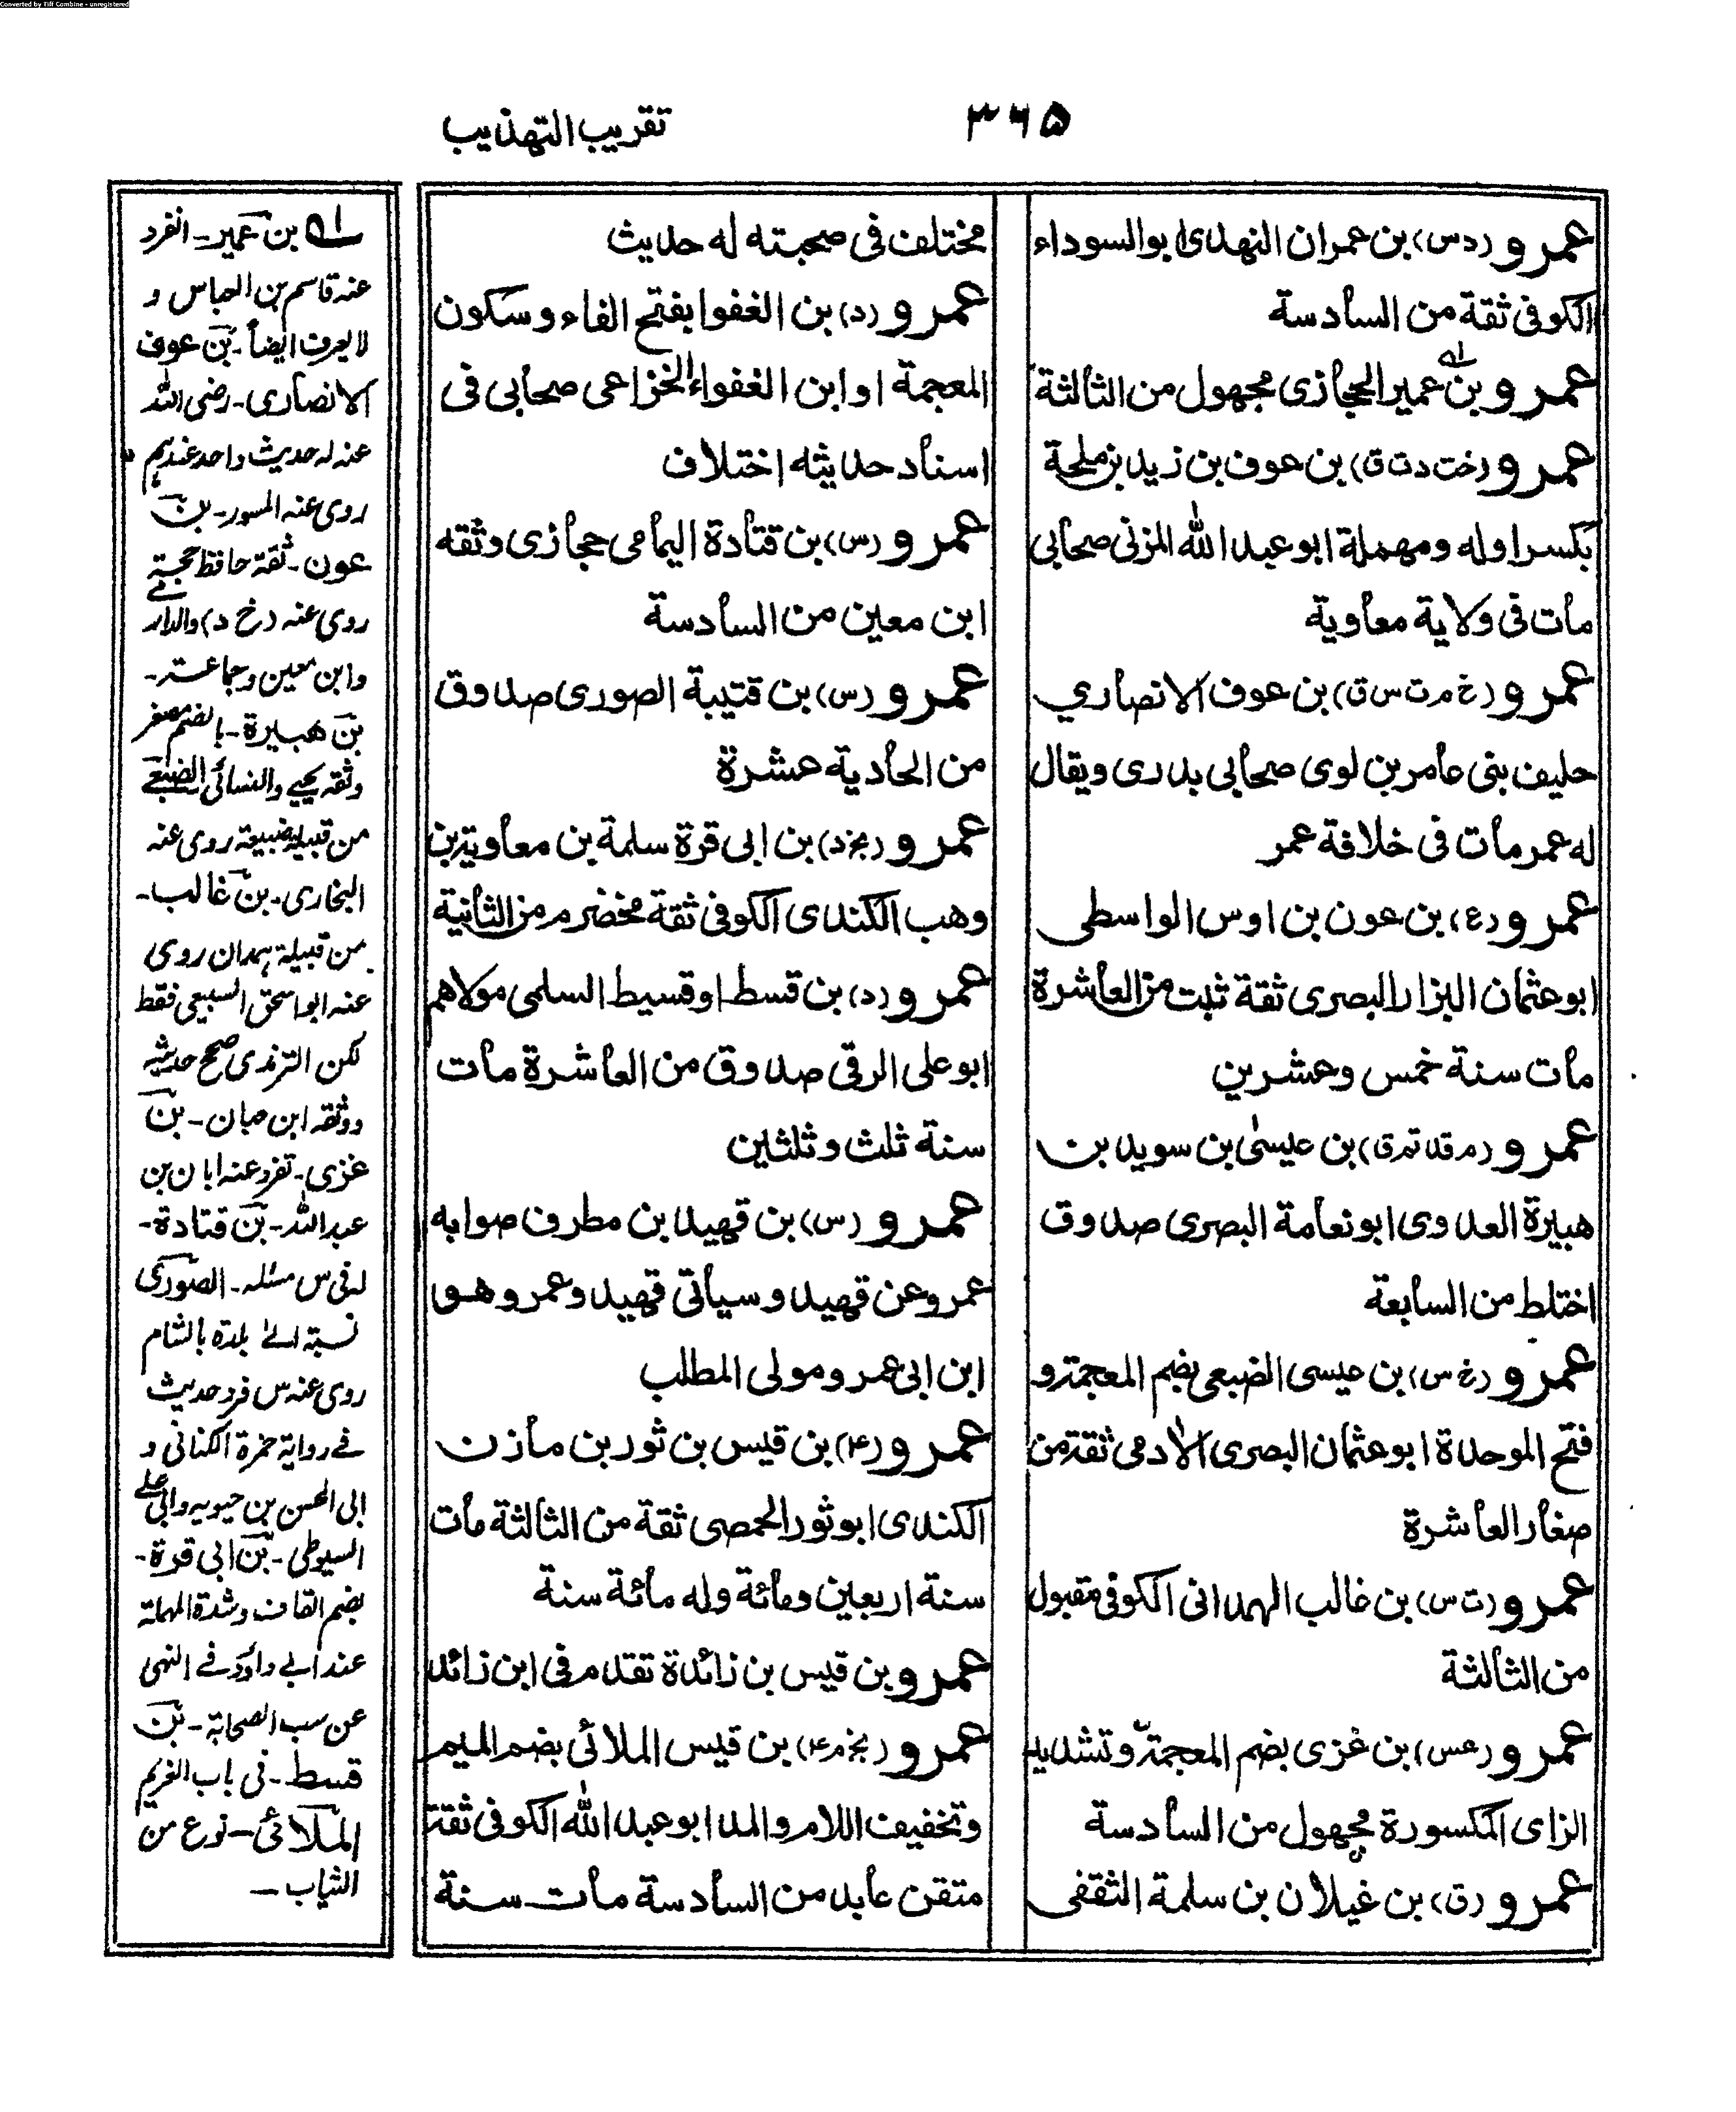 Converted by Tiff Combine - unregistered
۳۶۵
تقریب التهذیب
عمرو (د س) بن عمران النهدی ابو السوداء
الکوفی ثقة من السادسة
عمرو بن عمیر الحجازی مجهول من الثالثة
عمرو (خت د ت ق) بن عوف بن زید بن ملحة
بکسر اوله ومهملة ابو عبد الله المزنی صحابی
مات فی ولایة معاویة
عمرو (خ م ت س ق) بن عوف الانصاري
حلیف بنی عامر بن لوی صحابی بدری ویقال
له عمر مات فی خلافة عمر
عمرو (ع) بن عون بن اوس الواسطی
ابو عثمان البزار البصری ثقة ثبت من العاشرة
مات سنة خمس وعشرین
عمرو (م قد تم ق) بن عیسیٰ بن سوید بن
هبیرة العدوی ابو نعامة البصری صدوق
اختلط من السابعة
عمرو (خ س) بن عیسی الضبعی بضم المعجمة و
فتح الموحدة ابو عثمان البصری الادمی ثقة من
صغار العاشرة
عمرو (ت س) بن غالب الهمدانی الکوفی مقبول
من الثالثة
عمرو (عس) بن غزی بضم المعجمة وتشدید
الزای المکسورة مجهول من السادسة
عمرو (ق) بن غیلان بن سلمة الثقفی
مختلف فی صحبته له حدیث
عمرو (د) بن الغفوا بفتح الفاء وسکون
المعجمة او ابن الغفواء الخزاعی صحابی فی
اسناد حدیثه اختلاف
عمرو (س) بن قتادة الیمامی حجازی وثقه
ابن معین من السادسة
عمرو (س) بن قتیبة الصوری صدوق
من الحادیة عشرة
عمرو (بخ د) بن ابی قرة سلمة بن معاویة بن
وهب الکندی الکوفی ثقة مخضرم من الثانیة
عمرو (د) بن قسط او قسیط السلمی مولاهم
ابو علی الرقی صدوق من العاشرة مات
سنة ثلث وثلثین
عمرو (س) بن قهید بن مطرف صوابه
عمرو عن قهید وسیاتی قهید وعمرو هو
ابن ابی عمرو مولی المطلب
عمرو (۴) بن قیس بن ثور بن مازن
الکندی ابو ثور الحمصی ثقة من الثالثة مات
سنة اربعین ومائة وله مائة سنة
عمرو بن قیس بن زائدة تقدم فی ابن زائد
عمرو (بخ م ۴) بن قیس الملائی بضم المیم
وتخفیف اللام والمد ابو عبد الله الکوفی ثقة
متقن عابد من السادسة مات سنة
له بن عمیر - انفرد
عنه قاسم بن العباس و
لا یعرف ایضاً - بن عوف
الانصاری - رضی الله
عنه له حدیث واحد عندهم
روی عنه المسور - بن
عون - ثقة حافظ حجة
روی عنه (خ د) والدار
وابن معین وجماعة -
بن هبیرة - بالضم مصغر
وثقه یحیی والنسائی الضبعی
من قبیلة ضبیعة روی عنه
البخاری - بن غالب -
من قبیلة همدان روی
عنه ابو اسحق السبیعی فقط
لکن الترمذی صحح حدیثه
ووثقه ابن حبان - بن
غزی - تفرد عنه ابان بن
عبد الله - بن قتادة -
له فی س مسئله - الصوری
نسبة الی بلدة بالشام
روی عنه س فرد حدیث
فی روایة حمزة الکنانی و
ابی الحسن بن حیویه وابی علی
السیوطی - بن ابی قرة -
بضم القاف وشدة المهملة
عند ابی داود فی النهی
عن سب الصحابة - بن
قسط - فی باب الخریم
الملائی - نوع من
الثیاب -